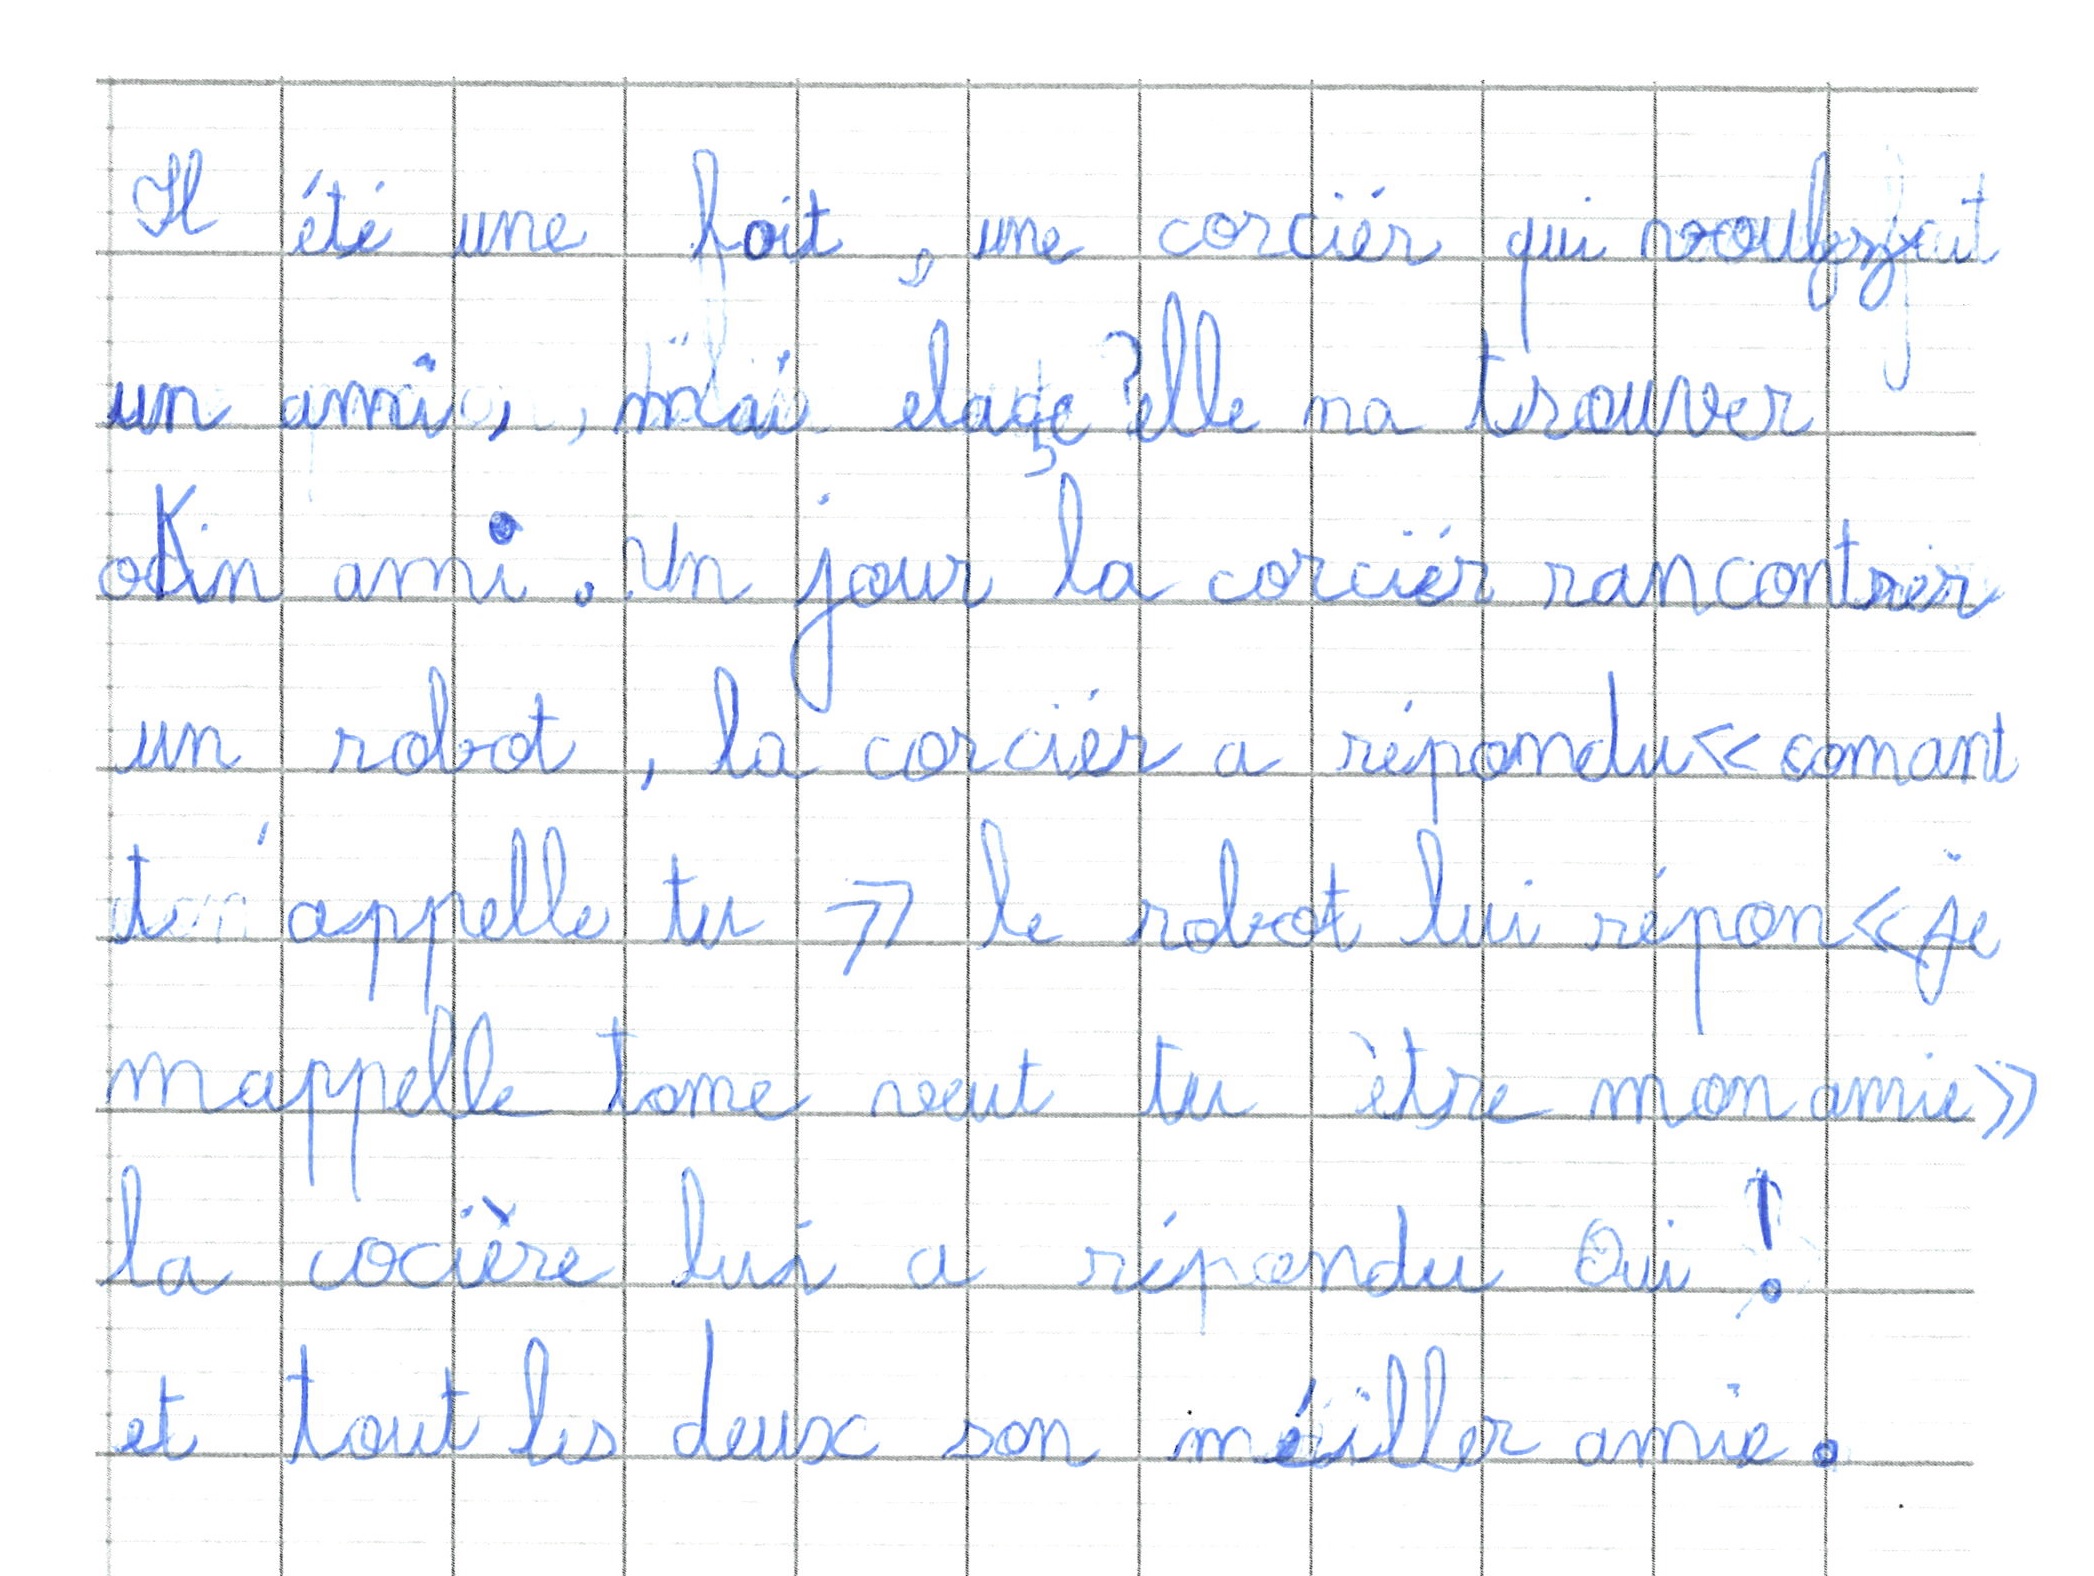 Il été une foit, une corciér qui
un ami, mai elle na trouver
ami. Un jour la corciér rancontrer
un robot, la corciér a répondu « comant
t'appelle tu » le robot lui répon « je
mappelle tome veut tu être mon amie »
la cocière lui a répondu Oui !
et tout les deux son méiller amie.